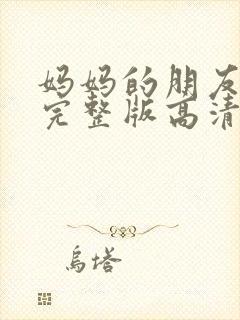 妈妈的朋友
完整版高清
乌塔